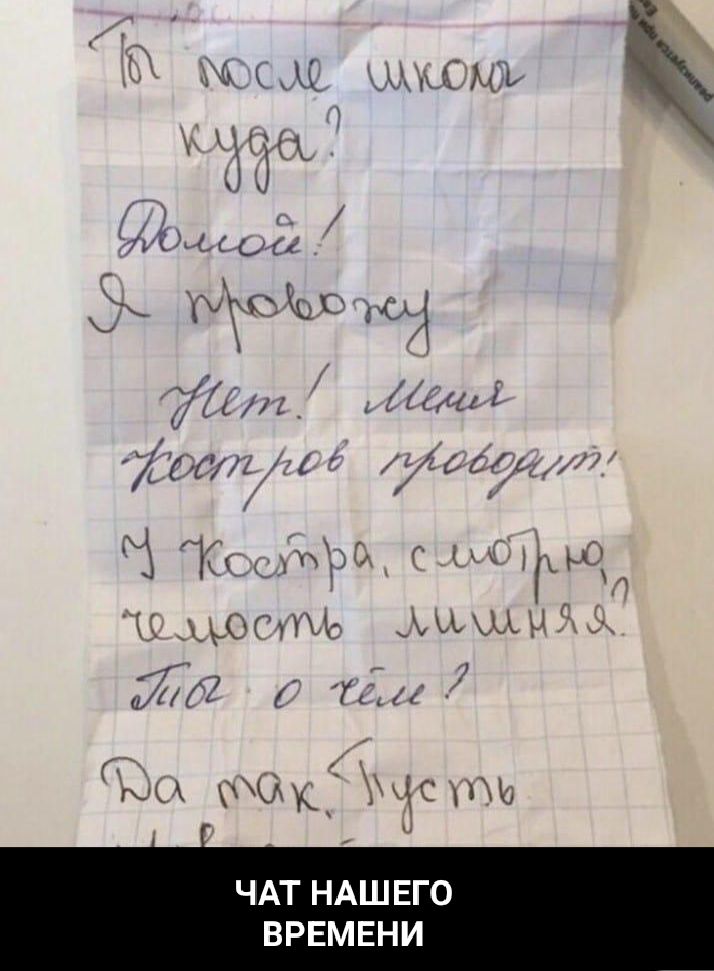 Ты после школы
куда?
Домой!
Я провожу
Нет! Меня
Костров проводит!
У Костра, смотрю,
челюсть лишняя?
Ты о чём?
Да так. Пусть
ЧАТ НАШЕГО
ВРЕМЕНИ